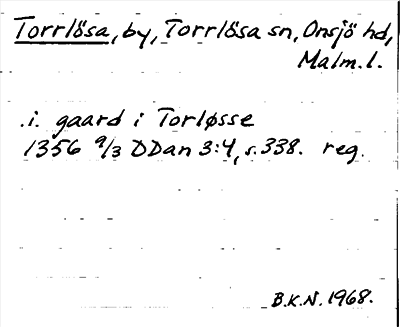 Torrlösa, by, Torrlösa sn, Onsjö hd,
Malm. l.
.i. gaard i Torløsse
1356 9/3 DDan 3:4, s. 338. reg.
B.K.N. 1968.